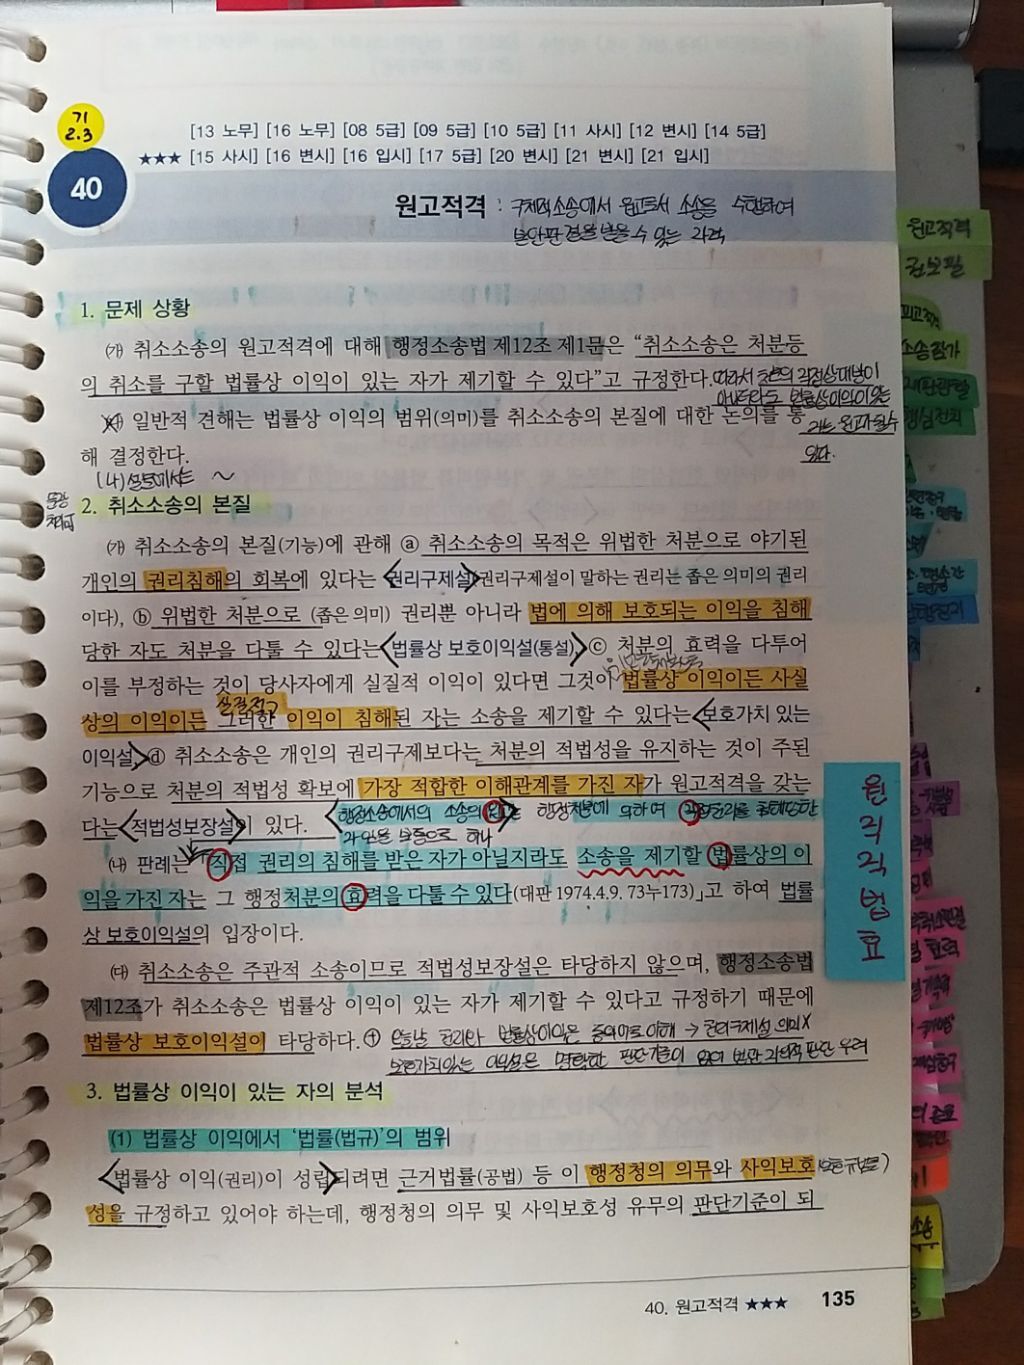 기
2.3
[13 노무] [16 노무] [08 5급] [09 5급] [10 5급] [11 사시] [12 변시] [14 5급]
★★★ [15 사시] [16 변시] [16 입시] [17 5급] [20 변시] [21 변시] [21 입시]
40
원고적격 : 구체적소송에서 원고로서 소송을 수행하여
본안판결을 받을 수 있는 자격
1. 문제 상황
㈎ 취소소송의 원고적격에 대해 행정소송법 제12조 제1문은 “취소소송은 처분등
의 취소를 구할 법률상 이익이 있는 자가 제기할 수 있다”고 규정한다. 따라서 처분의 직접상대방이
아니더라도 법률상이익이 있는
자는 원고가 될 수
있다.
㈏ 일반적 견해는 법률상 이익의 범위(의미)를 취소소송의 본질에 대한 논의를 통
해 결정한다.
2. 취소소송의 본질
㈎ 취소소송의 본질(기능)에 관해 ⓐ 취소소송의 목적은 위법한 처분으로 야기된
개인의 권리침해의 회복에 있다는 <권리구제설> 권리구제설이 말하는 권리는 좁은 의미의 권리
이다), ⓑ 위법한 처분으로 (좁은 의미) 권리뿐 아니라 법에 의해 보호되는 이익을 침해
당한 자도 처분을 다툴 수 있다는 <법률상 보호이익설(통설)>, ⓒ 처분의 효력을 다투어
이를 부정하는 것이 당사자에게 실질적 이익이 있다면 그것이 법률상 이익이든 사실
상의 이익이든 그러한 이익이 침해된 자는 소송을 제기할 수 있다는 <보호가치 있는
실질적
이익설>, ⓓ 취소소송은 개인의 권리구제보다는 처분의 적법성을 유지하는 것이 주된
기능으로 처분의 적법성 확보에 가장 적합한 이해관계를 가진 자가 원고적격을 갖는
다는 <적법성보장설>이 있다.
행정소송에서의 소송의 원고는 행정처분에 의하여 직접권리를 침해당한
자임을 보통으로 하나
㈏ 판례는 「직접 권리의 침해를 받은 자가 아닐지라도 소송을 제기할 법률상의 이
익을 가진 자는 그 행정처분의 효력을 다툴 수 있다(대판 1974.4.9. 73누173)」고 하여 법률
상 보호이익설의 입장이다.
㈐ 취소소송은 주관적 소송이므로 적법성보장설은 타당하지 않으며, 행정소송법
제12조가 취소소송은 법률상 이익이 있는 자가 제기할 수 있다고 규정하기 때문에
법률상 보호이익설이 타당하다. ⊕ 오늘날 권리와 법률상이익은 동의어로 이해 → 권리구제설 의미 X
보호가치있는 이익설은 명확한 판단기준이 없어 법관 자의적 판단 우려
3. 법률상 이익이 있는 자의 분석
(1) 법률상 이익에서 ‘법률(법규)’의 범위
<법률상 이익(권리)이 성립>되려면 근거법률(공법) 등 이 행정청의 의무와 사익보호
성을 규정하고 있어야 하는데, 행정청의 의무 및 사익보호성 유무의 판단기준이 되
40. 원고적격 ★★★ 135
원
직
직
법
효
원고적격
권보필
피고적격
소송참가